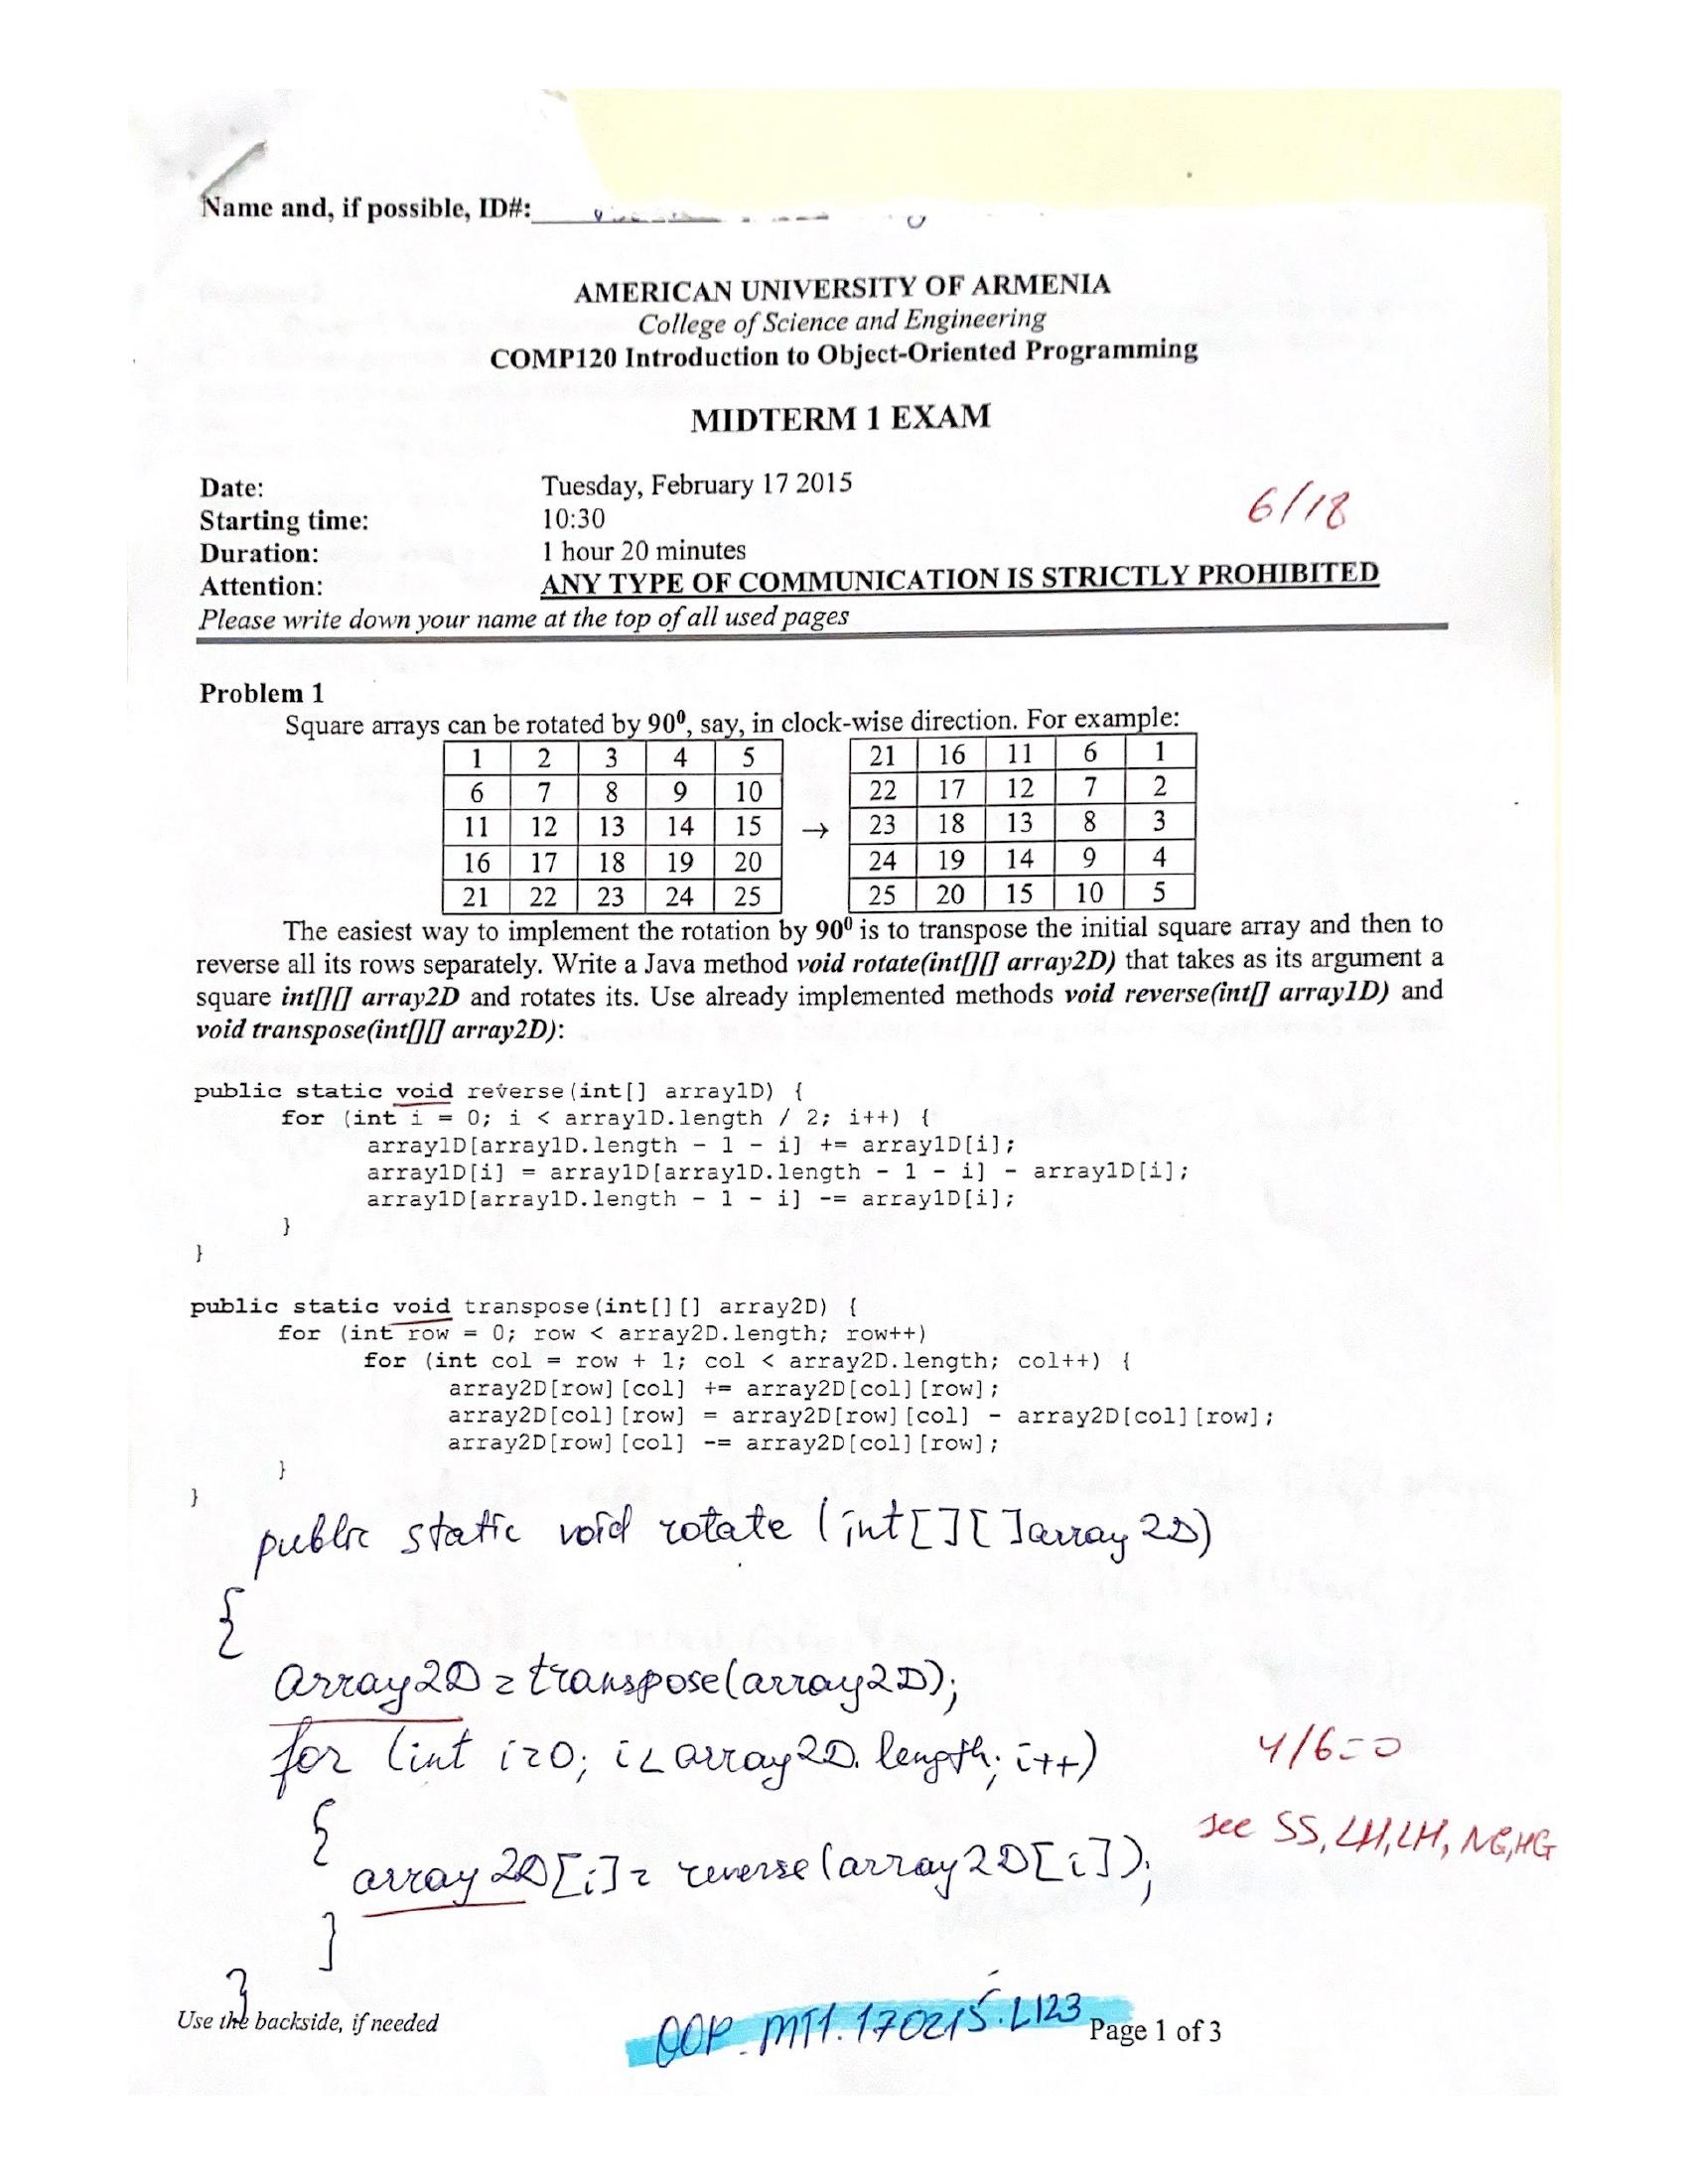 Name and, if possible, ID#:
AMERICAN UNIVERSITY OF ARMENIA
College of Science and Engineering
COMP120 Introduction to Object-Oriented Programming
MIDTERM 1 EXAM
Date: Tuesday, February 17 2015
6/18
Starting time: 10:30
Duration: 1 hour 20 minutes
Attention: ANY TYPE OF COMMUNICATION IS STRICTLY PROHIBITED
Please write down your name at the top of all used pages
Problem 1
Square arrays can be rotated by 90⁰, say, in clock-wise direction. For example:
1 2 3 4 5 21 16 11 6 1
6 7 8 9 10 22 17 12 7 2
11 12 13 14 15 → 23 18 13 8 3
16 17 18 19 20 24 19 14 9 4
21 22 23 24 25 25 20 15 10 5
The easiest way to implement the rotation by 90⁰ is to transpose the initial square array and then to
reverse all its rows separately. Write a Java method void rotate(int[][] array2D) that takes as its argument a
square int[][] array2D and rotates its. Use already implemented methods void reverse(int[] array1D) and
void transpose(int[][] array2D):
public static void reverse(int[] array1D) {
for (int i = 0; i < array1D.length / 2; i++) {
array1D[array1D.length - 1 - i] += array1D[i];
array1D[i] = array1D[array1D.length - 1 - i] - array1D[i];
array1D[array1D.length - 1 - i] -= array1D[i];
}
}
public static void transpose(int[][] array2D) {
for (int row = 0; row < array2D.length; row++)
for (int col = row + 1; col < array2D.length; col++) {
array2D[row][col] += array2D[col][row];
array2D[col][row] = array2D[row][col] - array2D[col][row];
array2D[row][col] -= array2D[col][row];
}
}
public static void rotate (int[][]array2D)
{
array2D=transpose(array2D);
for (int i=0; i<array2D.length; i++)
4/6=0
{
see SS, LH, LH, NG, HG
array2D[i]= reverse(array2D[i]);
}
}
Use the backside, if needed
OOP.MT1.170215.L123
Page 1 of 3